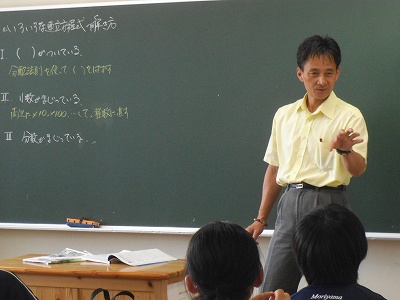 ○いろいろな連立方程式の解き方
Ⅰ. ( )がついている.
分配法則を使って( )をはずす
Ⅱ. 小数がまじっている.
両辺を×10,×100,…して,整数に直す
Ⅲ 分数がまじっている...
Moriyama